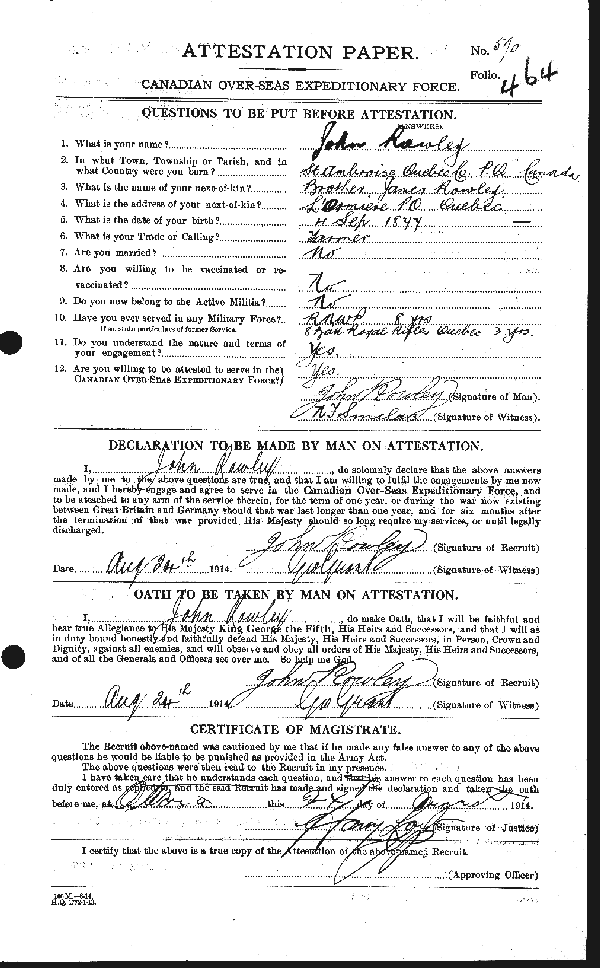 ATTESTATION PAPER.
No. 540
Folio. 464
CANADIAN OVER-SEAS EXPEDITIONARY FORCE.
QUESTIONS TO BE PUT BEFORE ATTESTATION.
(ANSWERS)
1. What is your name? John Rowley
2. In what Town, Township or Parish, and in
what Country were you born? St Ambroise Quebec P.Q. Canada
3. What is the name of your next-of-kin? Brother James Rowley
4. What is the address of your next-of-kin? PO Quebec
5. What is the date of your birth? 4 Sep 1877 —
6. What is your Trade or Calling? Farmer
7. Are you married? No
8. Are you willing to be vaccinated or re-
vaccinated? No
9. Do you now belong to the Active Militia? No
10. Have you ever served in any Military Force? RNWP 8 yrs
If so, state particulars of former Service. 8 Batt Royal Rifles Quebec 3 yrs.
11. Do you understand the nature and terms of
your engagement? Yes.
12. Are you willing to be attested to serve in the
CANADIAN OVER-SEAS EXPEDITIONARY FORCE? Yes.
John Rowley (Signature of Man).
(Signature of Witness).
DECLARATION TO BE MADE BY MAN ON ATTESTATION.
I, John Rowley, do solemnly declare that the above answers
made by me to the above questions are true, and that I am willing to fulfil the engagements by me now
made, and I hereby engage and agree to serve in the Canadian Over-Seas Expeditionary Force, and
to be attached to any arm of the service therein, for the term of one year, or during the war now existing
between Great Britain and Germany should that war last longer than one year, and for six months after
the termination of that war provided His Majesty should so long require my services, or until legally
discharged.
John Rowley (Signature of Recruit)
Date Aug 24th 1914. Geo Grant (Signature of Witness)
OATH TO BE TAKEN BY MAN ON ATTESTATION.
I, John Rowley, do make Oath, that I will be faithful and
bear true Allegiance to His Majesty King George the Fifth, His Heirs and Successors, and that I will as
in duty bound honestly and faithfully defend His Majesty, His Heirs and Successors, in Person, Crown and
Dignity, against all enemies, and will observe and obey all orders of His Majesty, His Heirs and Successors,
and of all the Generals and Officers set over me. So help me God.
John Rowley (Signature of Recruit)
Date Aug 24th 1914 Geo Grant (Signature of Witness)
CERTIFICATE OF MAGISTRATE.
The Recruit above-named was cautioned by me that if he made any false answer to any of the above
questions he would be liable to be punished as provided in the Army Act.
The above questions were then read to the Recruit in my presence.
I have taken care that he understands each question, and that his answer to each question has been
duly entered as replied to, and the said Recruit has made and signed the declaration and taken the oath
before me, at Ottawa this 24 day of August 1914.
(Signature of Justice)
I certify that the above is a true copy of the Attestation of the above-named Recruit.
(Approving Officer)
100 M.—8-14.
H.Q. 1772-1-13.